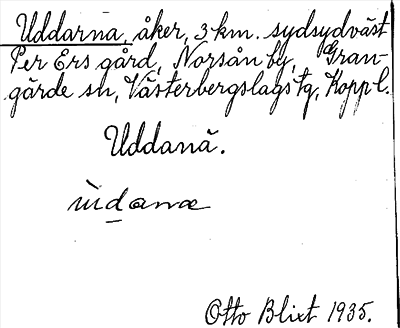 Uddarna, åker, 3 km. sydsydväst
Per Ers gård, Norsån by, Gran-
gärde sn, Västerbergslags tg, Kopp l.
Uddanä.